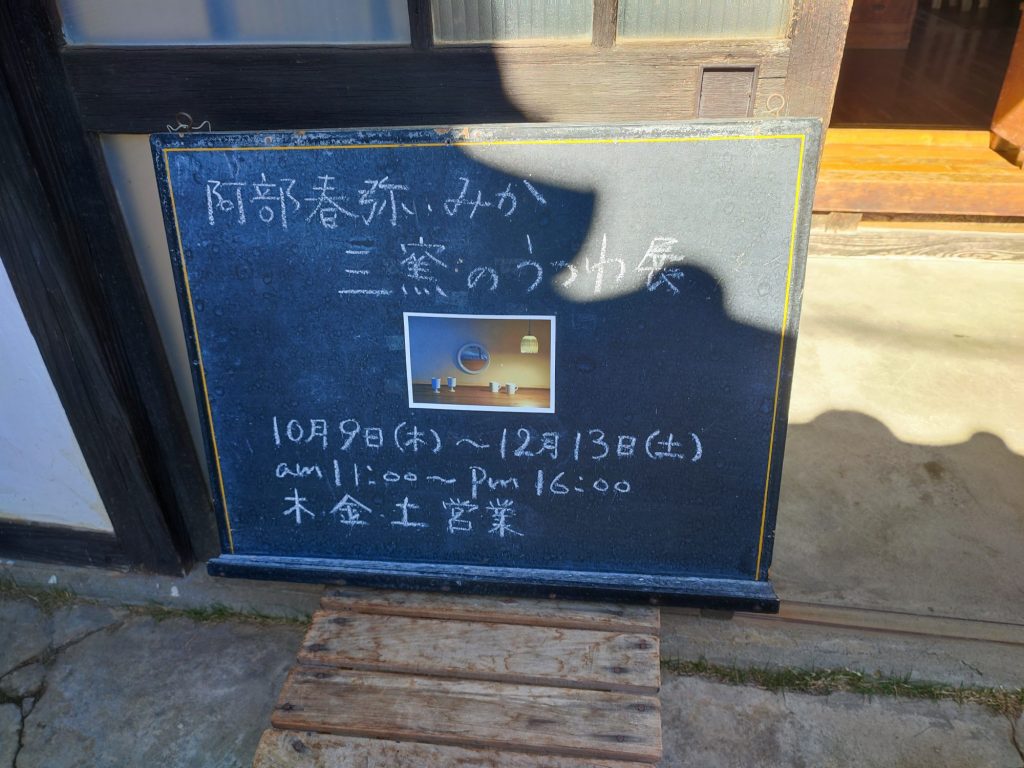 阿部春弥・みか
三窯のうつわ展
10月9日(木)～12月13日(土)
am 11:00～pm 16:00
木・金・土 営業